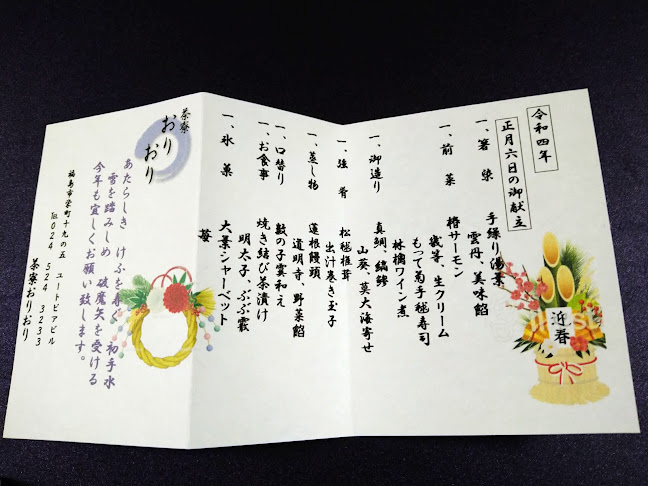 令和四年
正月六日の御献立
一、箸染 手繰り湯葉
雲丹、美味餡
一、前菜 椿サーモン
歳苳、生クリーム
もって菊手毬寿司
林檎ワイン煮
一、御造り 真鯛、縞鰺
山葵、莫大海寄せ
一、強肴 松毬椎茸
出汁巻き玉子
一、蒸し物 蓮根饅頭
道明寺、野菜餡
一、口替り 数の子霙和え
一、お食事 焼き結び茶漬け
明太子、ぶぶ霰
一、氷菓 大葉シャーベット
苺
迎春
茶寮
おりおり
あたらしき けふを寿ぐ 初手水
雪を踏みしめ 破魔矢を受ける
今年も宜しくお願い致します。
福島市栄町十九の五 ユートピアビル
℡024 524 3233
茶寮おりおり